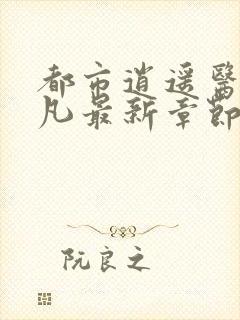 都市逍遥医
凡最新章节
阮良之